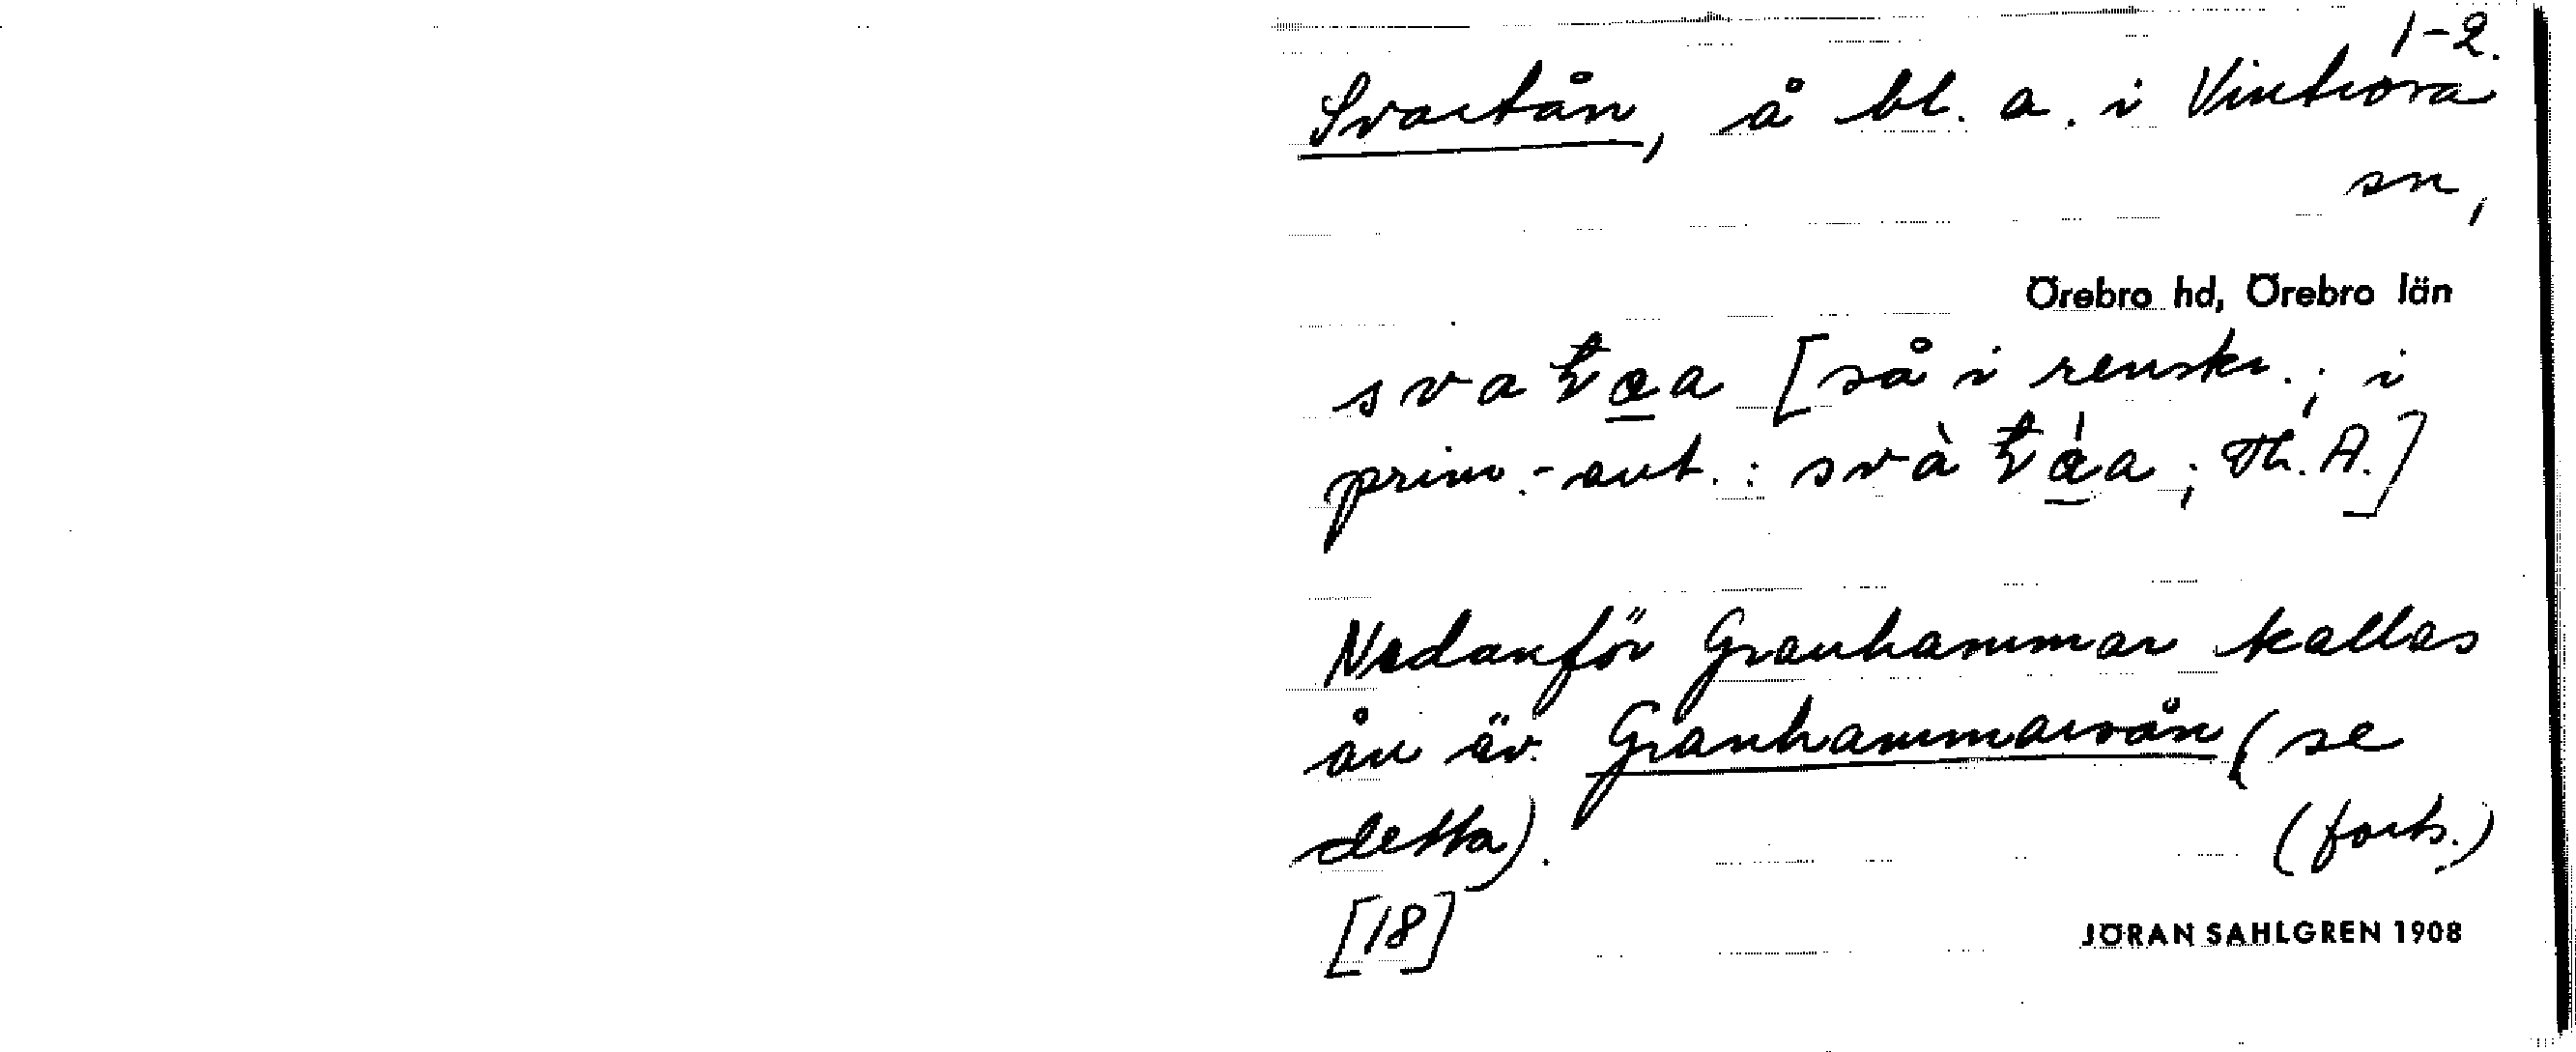 1-2.
Svartån, å bl. a. i Vintrosa
sn,
Örebro hd, Örebro län
[så i renskr.; i
prim.-ant.: ; Th. A.]
Nedanför Granhammar kallas
ån äv. Granhammarsån (se
detta). (forts.)
[18]
JÖRAN SAHLGREN 1908